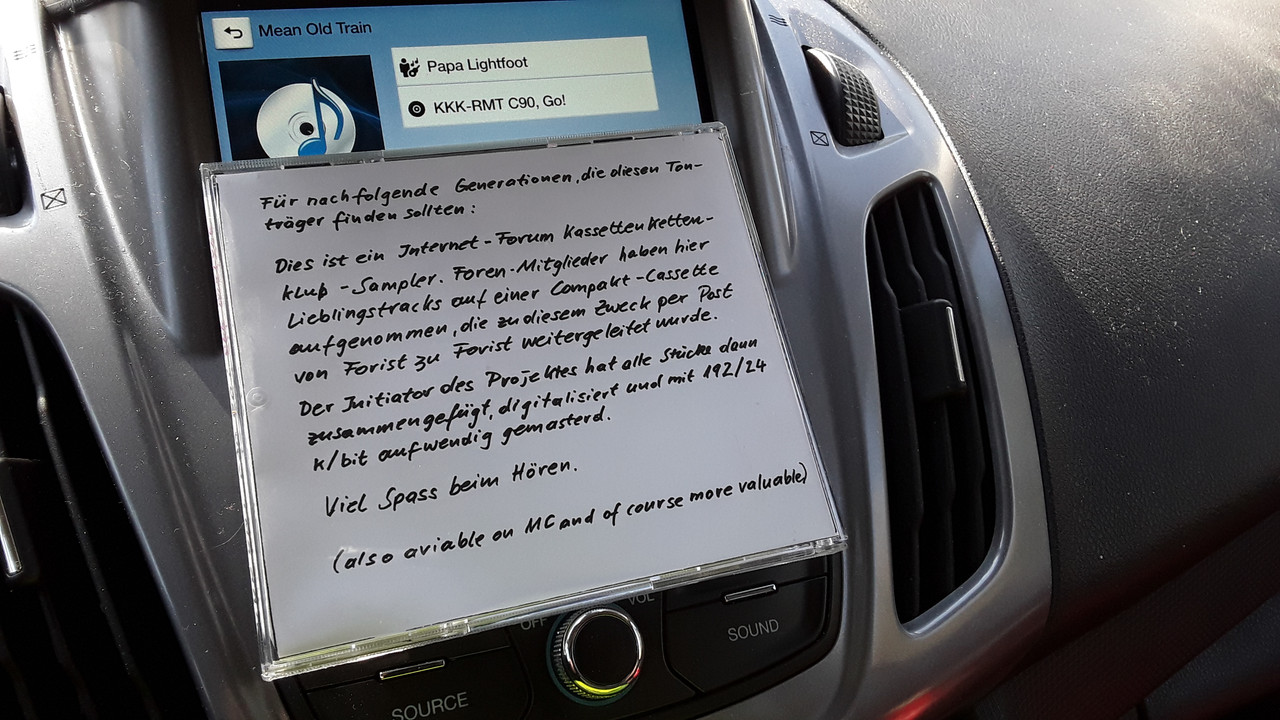 Mean Old Train
Papa Lightfoot
KKK-RMT C90, Go!
Für nachfolgende Generationen, die diesen Ton-
träger finden sollten:
Dies ist ein Internet-Forum Kassettenketten-
klub-Sampler. Foren-Mitglieder haben hier
Lieblingstracks auf einer Compakt-Cassette
aufgenommen, die zu diesem Zweck per Post
von Forist zu Forist weitergeleitet wurde.
Der Initiator des Projektes hat alle Stücke dann
zusammengefügt, digitalisiert und mit 192/24
k/bit aufwendig gemasterd.
Viel Spass beim Hören.
(also aviable on MC and of course more valuable)
OFF
VOL
SOURCE
SOUND